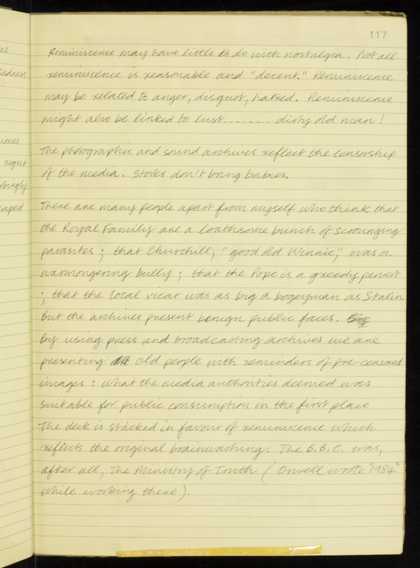 117
Reminiscence may have little to do with nostalgia. Not all
reminiscence is reasonable and "decent." Reminiscence
may be related to anger, disgust, hatred. Reminiscence
might also be linked to lust........ dirty old man!
The photographic and sound archives reflect the censorship
of the media. Storks don't bring babies.
There are many people apart from myself who think that
the Royal Family are a loathsome bunch of scrounging
parasites; that Churchill, "good old Winnie," was a
warmongering bully; that the Pope is a greedy
; that the local vicar was as big a bogeyman as Stalin
but the archives present benign public faces.
by using press and broadcasting archives we are
presenting old people with reminders of pre-censored
images: what the media authorities deemed was
suitable for public consumption in the first place
The deck is stacked in favour of reminiscence which
reflects the original brainwashing. The B.B.C. was,
after all, the Ministry of Truth (Orwell wrote "1984"
while working there).